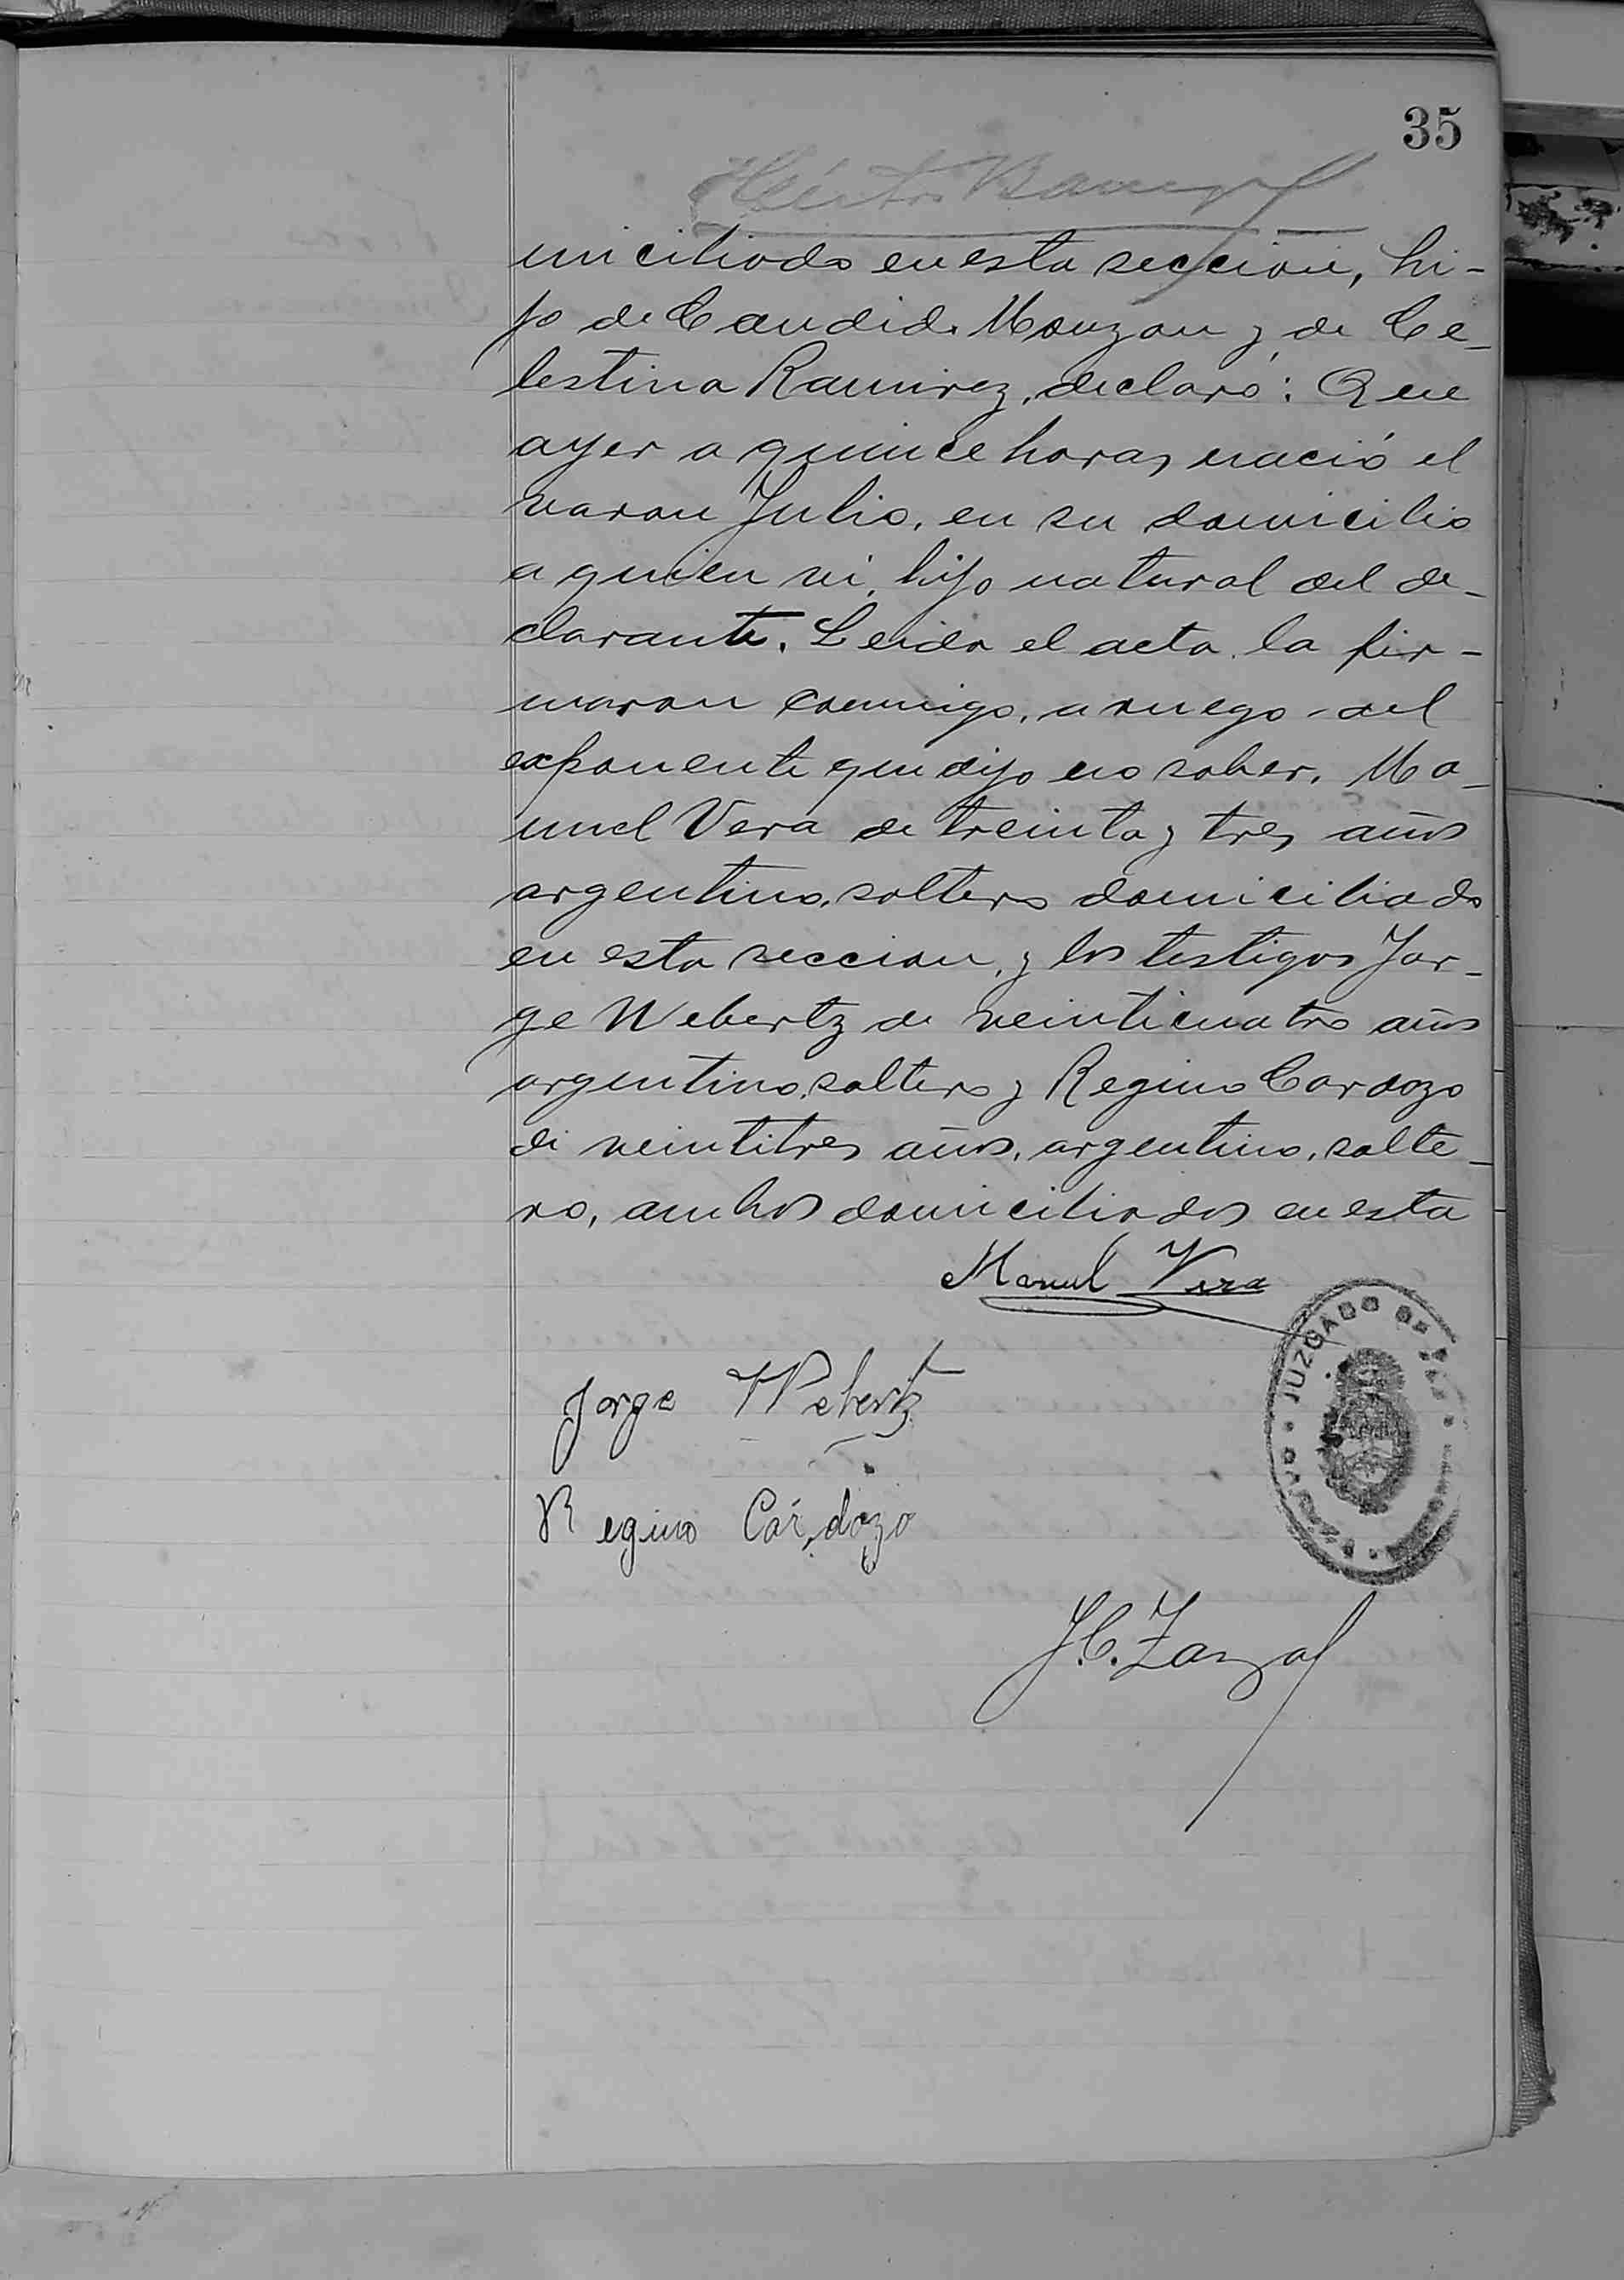 35
Héctor
miciliado en esta seccion, hi-
jo de Candido Monzon y de Ce-
lestina Ramirez, declaró: Que
ayer a quince horas nació el
varon Julio, en su domicilio
a quien vi, hijo natural del de-
clarante. Leida el acta la fir-
maron conmigo, a ruego del
exponente que dijo no saber, Ma-
nuel Vera de treinta y tres años
argentino, soltero domiciliado
en esta seccion, y los testigos Jor-
ge Webertz de veinticuatro años
argentino, soltero y Regino Cardozo
de veintitres años, argentino, solte-
ro, ambos domiciliados en esta
Manuel Vera
Jorge Webertz
Regino Cardozo
JUZGADO DE PAZ
J. C. Zarzal